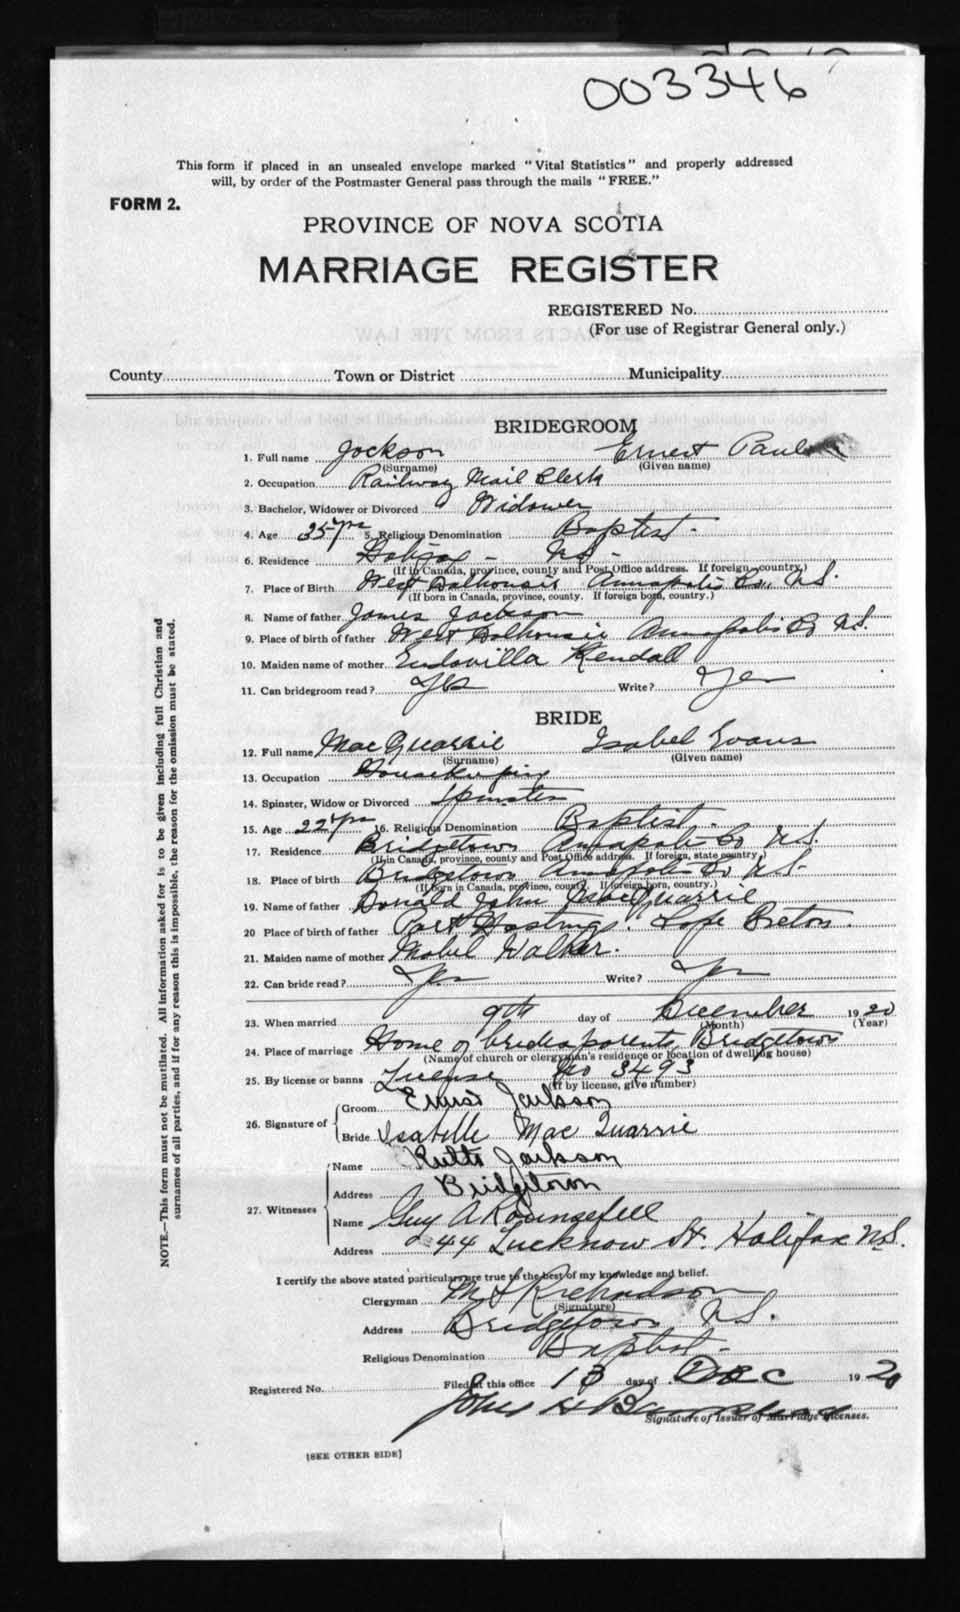 003346
This form if placed in an unsealed envelope marked "Vital Statistics" and properly addressed
will, by order of the Postmaster General pass through the mails "FREE."
FORM 2.
PROVINCE OF NOVA SCOTIA
MARRIAGE REGISTER
REGISTERED No.
(For use of Registrar General only.)
County Town or District Municipality
BRIDEGROOM
1. Full name Jackson Ernest Paul
(Surname) (Given name)
2. Occupation Railway Mail Clerk
3. Bachelor, Widower or Divorced Widower
4. Age 35 yrs 5. Religious Denomination Baptist
6. Residence Halifax - N.S.
(If in Canada, province, county and Post Office address. If foreign, country.)
7. Place of Birth West Dalhousie Annapolis Co. N.S.
(If born in Canada, province, county. If foreign born, country.)
8. Name of father James Jackson
9. Place of birth of father West Dalhousie Annapolis Co N.S.
10. Maiden name of mother Kendall
11. Can bridegroom read? Yes Write? Yes
BRIDE
12. Full name MacQuarrie Isabel Evans
(Surname) (Given name)
13. Occupation Housekeeping
14. Spinster, Widow or Divorced Spinster
15. Age 22 yrs 16. Religious Denomination Baptist
17. Residence Bridgetown Annapolis Co N.S.
(If in Canada, province, county and Post Office address. If foreign, state country)
18. Place of birth Bridgetown Annapolis Co N.S.
(If born in Canada, province, county. If foreign born, country.)
19. Name of father Donald John MacQuarrie
20 Place of birth of father Port Hastings. Cape Breton.
21. Maiden name of mother Mabel Walker.
22. Can bride read? Yes Write? Yes
23. When married 9th day of December 1920
(Month) (Year)
24. Place of marriage Home of brides parents, Bridgetown
(Name of church or clergyman's residence or location of dwelling house)
25. By license or banns License No 3493
(If by license, give number)
26. Signature of Groom Ernest Jackson
Bride Isabelle MacQuarrie
27. Witnesses Name Ruth Jackson
Address Bridgetown
Name Guy A Rounsefell
Address 44 Lucknow St. Halifax N.S.
I certify the above stated particulars are true to the best of my knowledge and belief.
Clergyman M S Richardson
(Signature)
Address Bridgetown N.S.
Religious Denomination Baptist
Registered No. Filed at this office 13 day of Dec 1920
John H
Signature of Issuer of Marriage Licenses.
[SEE OTHER SIDE]
NOTE.—This form must not be mutilated. All information asked for is to be given including full Christian and
surnames of all parties, and if for any reason this is impossible, the reason for the omission must be stated.